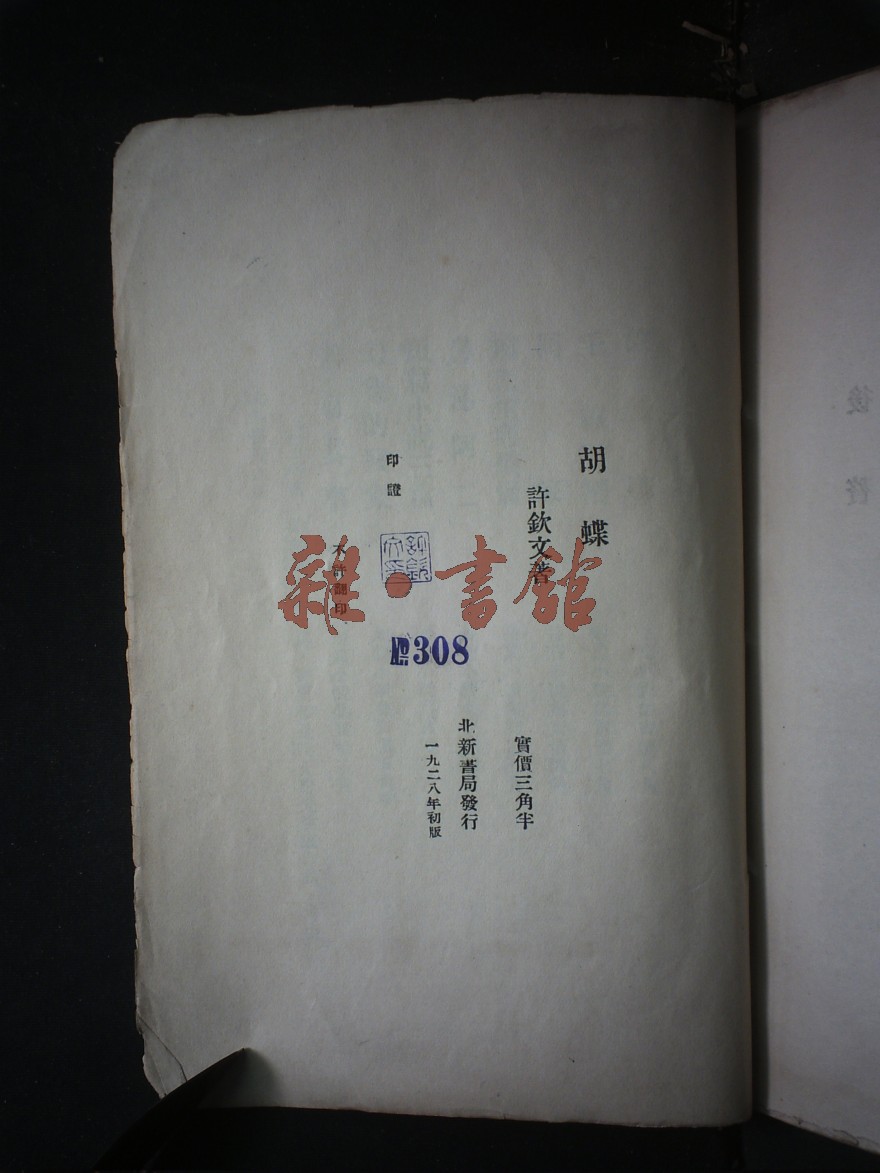 胡蝶
許欽文著
實價三角半
北新書局發行
一九二八年初版
印證
不許翻印
№308
雜·書館